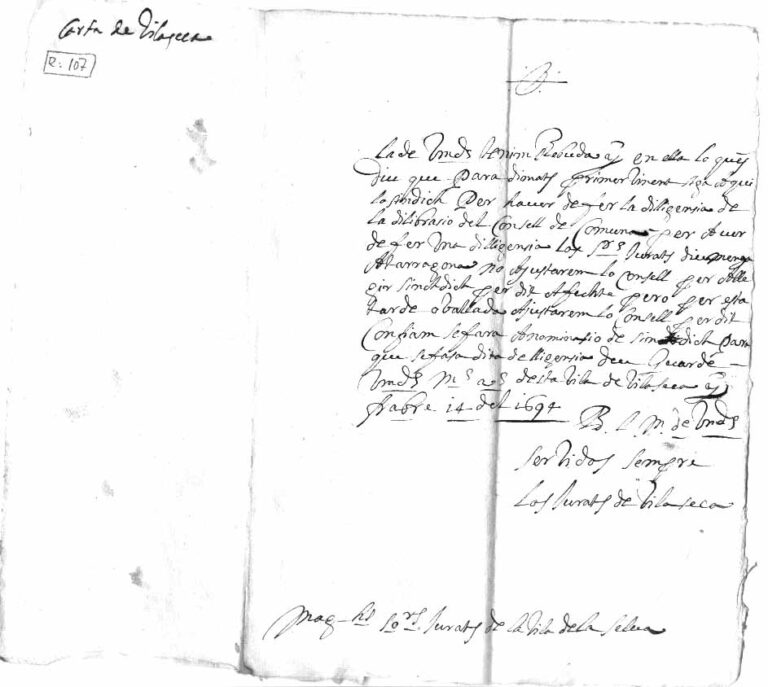 Carta de Vilaseca
R: 107
La de Vmds tenim Rebuda y en ella lo que
diu que para dionats primer vinent siga aqui
lo sindich Per hauer de fer la dilligensia de
la dilibrasio del Consell de Comuna per Auer
de fer Una dilligensia los Srs Jurats diumenge
A tarragona no Ajustarem lo Consell per Alle
gir sindich per dit Afechte pero per esta
tarde o Ajustarem lo Consell per dit
Confiam se fara Anominasio de sindich Para
que se fasa dita delligensia deu Guarde
Vmds Ms as desta Vila de Vilaseca y
frabre 14 del 1694
B. L. M. de Vmds
seruidos sempre
Los Jurats de Vilaseca
Mag-hs Sors Jurats de la Vila de la Selua